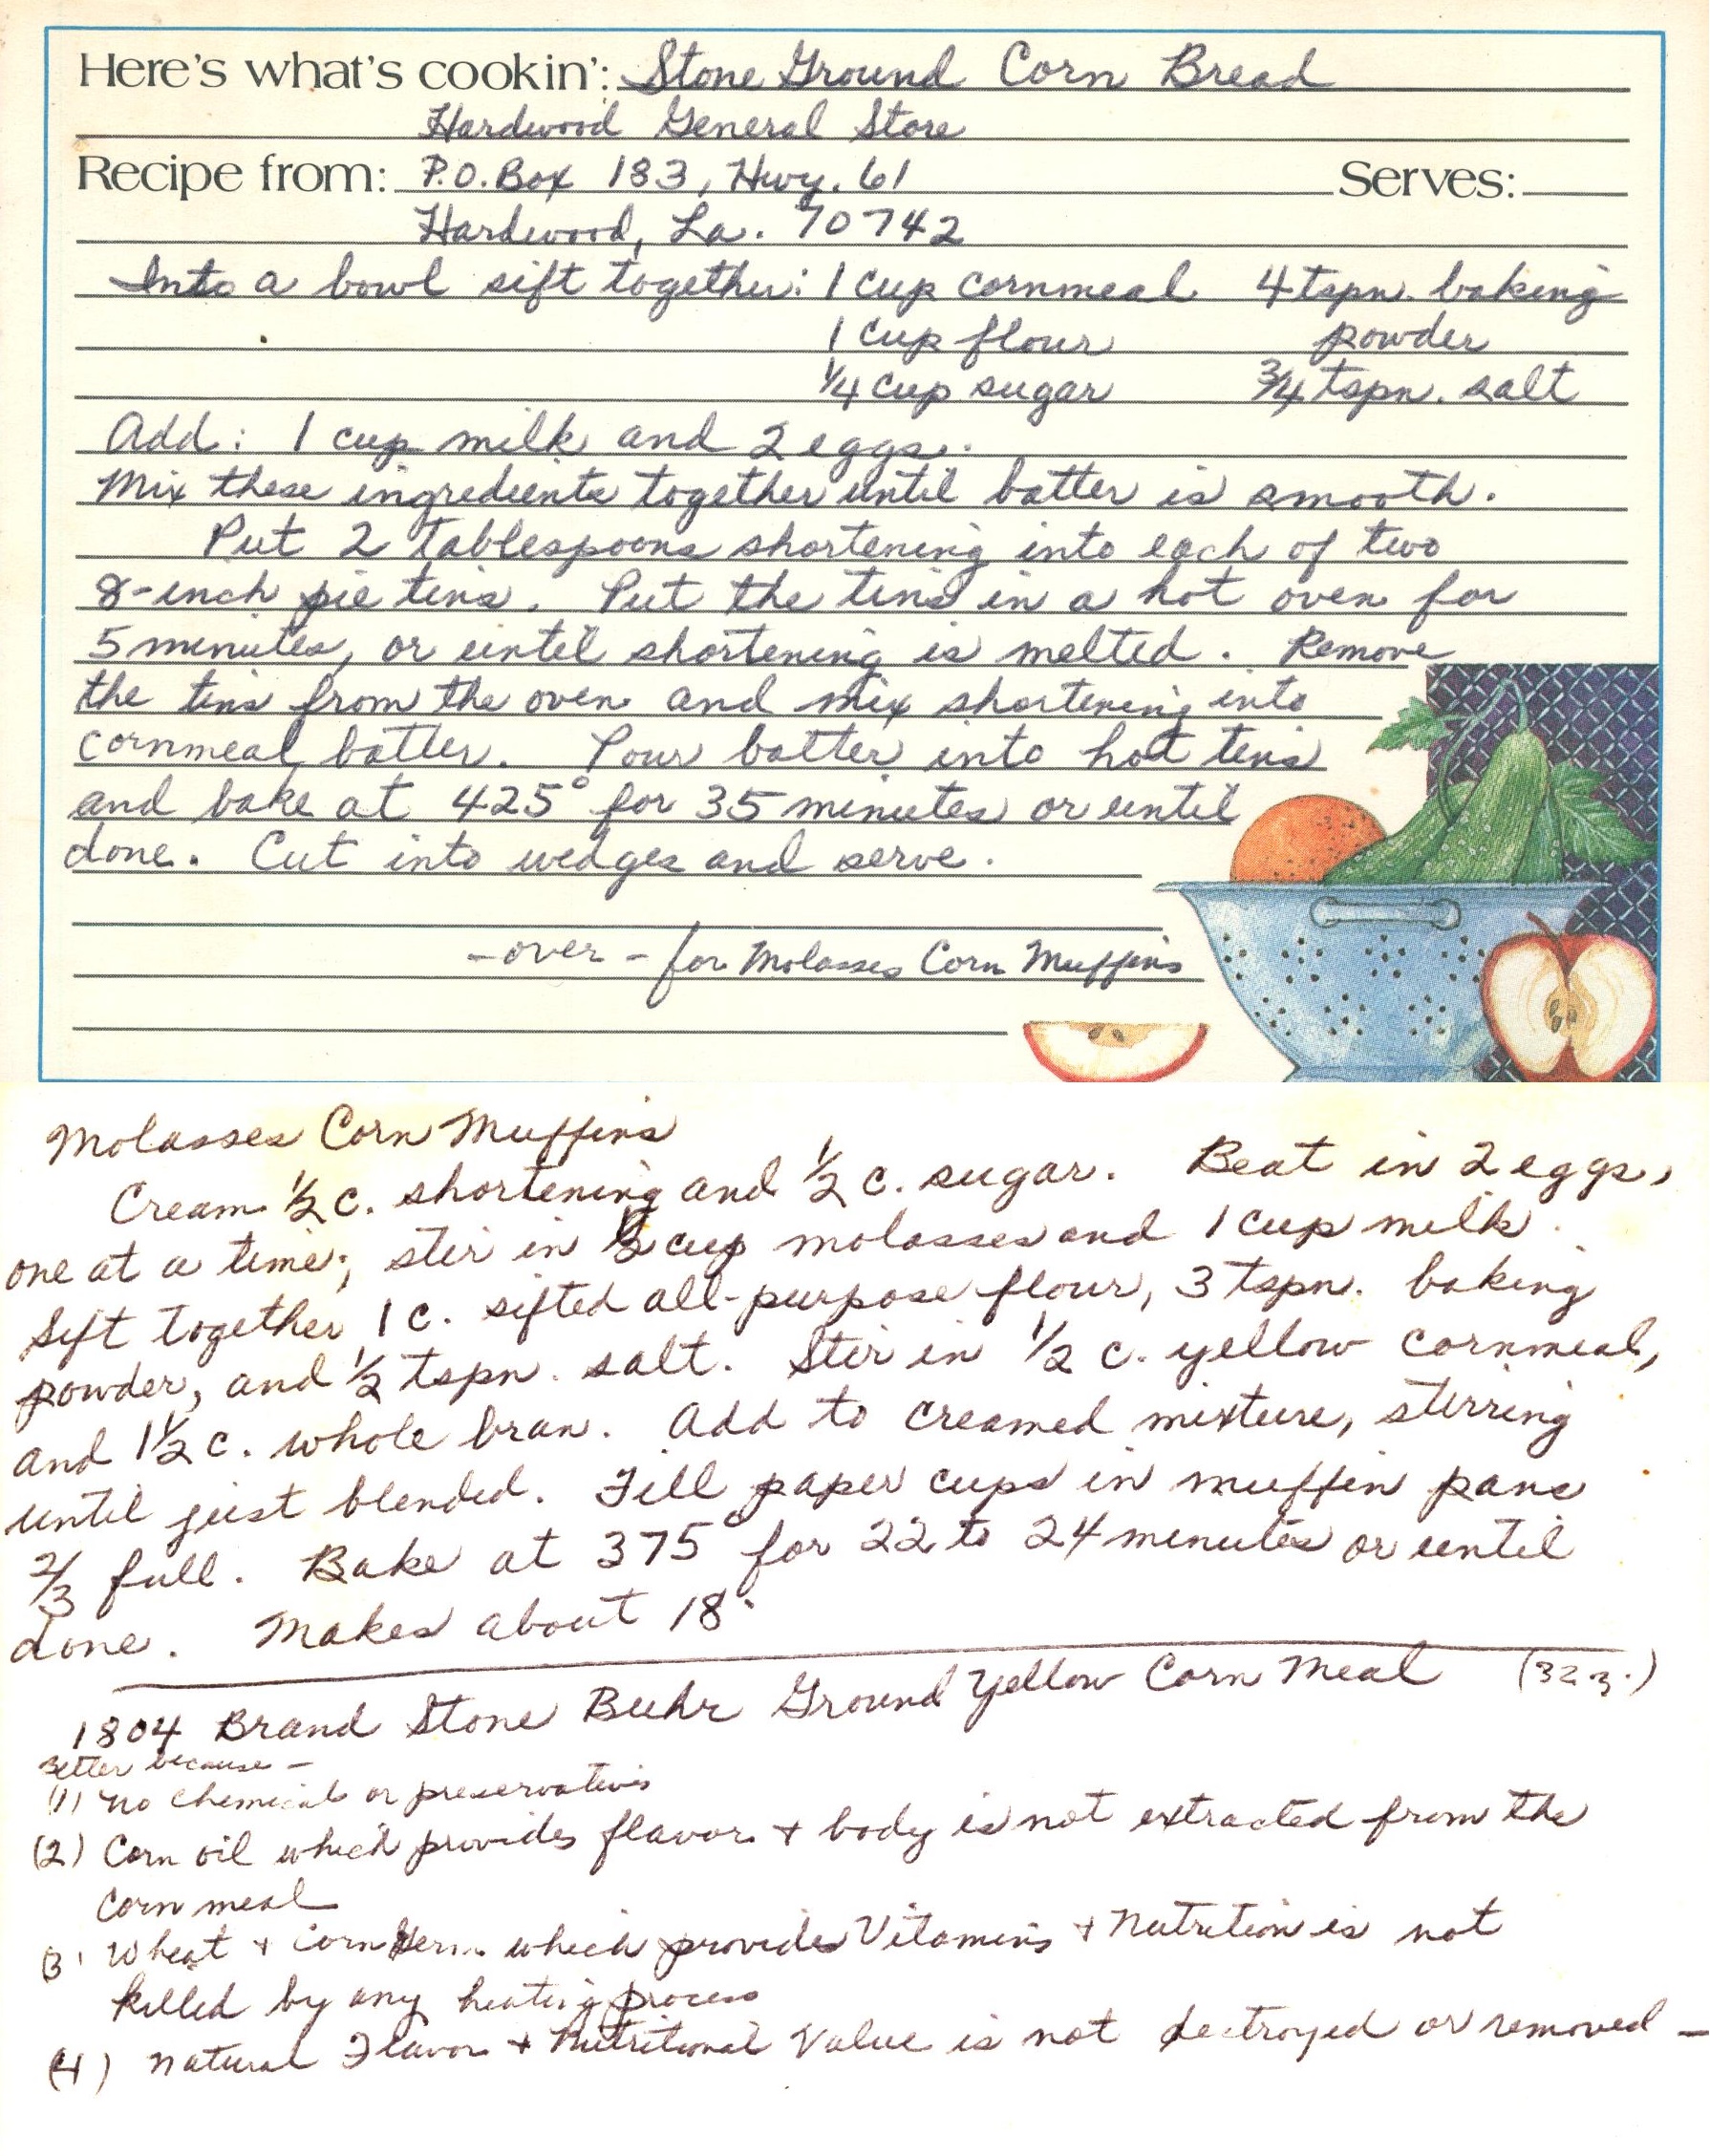 Here's what's cookin': Stone Ground Corn Bread
Hardwood General Store
Recipe from: P.O. Box 183, Hwy. 61 Serves:
Hardwood, La. 70742
Into a bowl sift together: 1 cup cornmeal 4 tspn. baking
1 cup flour powder
1/4 cup sugar 3/4 tspn. salt
Add: 1 cup milk and 2 eggs.
Mix these ingredients together until batter is smooth.
Put 2 tablespoons shortening into each of two
8-inch pie tins. Put the tins in a hot oven for
5 minutes, or until shortening is melted. Remove
the tins from the oven and mix shortening into
cornmeal batter. Pour batter into hot tins
and bake at 425° for 35 minutes or until
done. Cut into wedges and serve.
- over - for Molasses Corn Muffins
Molasses Corn Muffins
Cream 1/2 c. shortening and 1/2 c. sugar. Beat in 2 eggs,
one at a time; stir in 1/2 cup molasses and 1 cup milk.
Sift together 1 c. sifted all-purpose flour, 3 tspn. baking
powder, and 1/2 tspn. salt. Stir in 1/2 c. yellow cornmeal,
and 1 1/2 c. whole bran. Add to creamed mixture, stirring
until just blended. Fill paper cups in muffin pans
2/3 full. Bake at 375° for 22 to 24 minutes or until
done. Makes about 18.
1804 Brand Stone Buhr Ground Yellow Corn Meal
Better because -
(1) No Chemicals or preservatives
(2) Corn oil which provides flavor + body is not extracted from the
corn meal
(3) Wheat + corn germ which provides Vitamins + Nutrition is not
killed by any heating process
(4) Natural Flavor + Nutritional Value is not destroyed or removed -